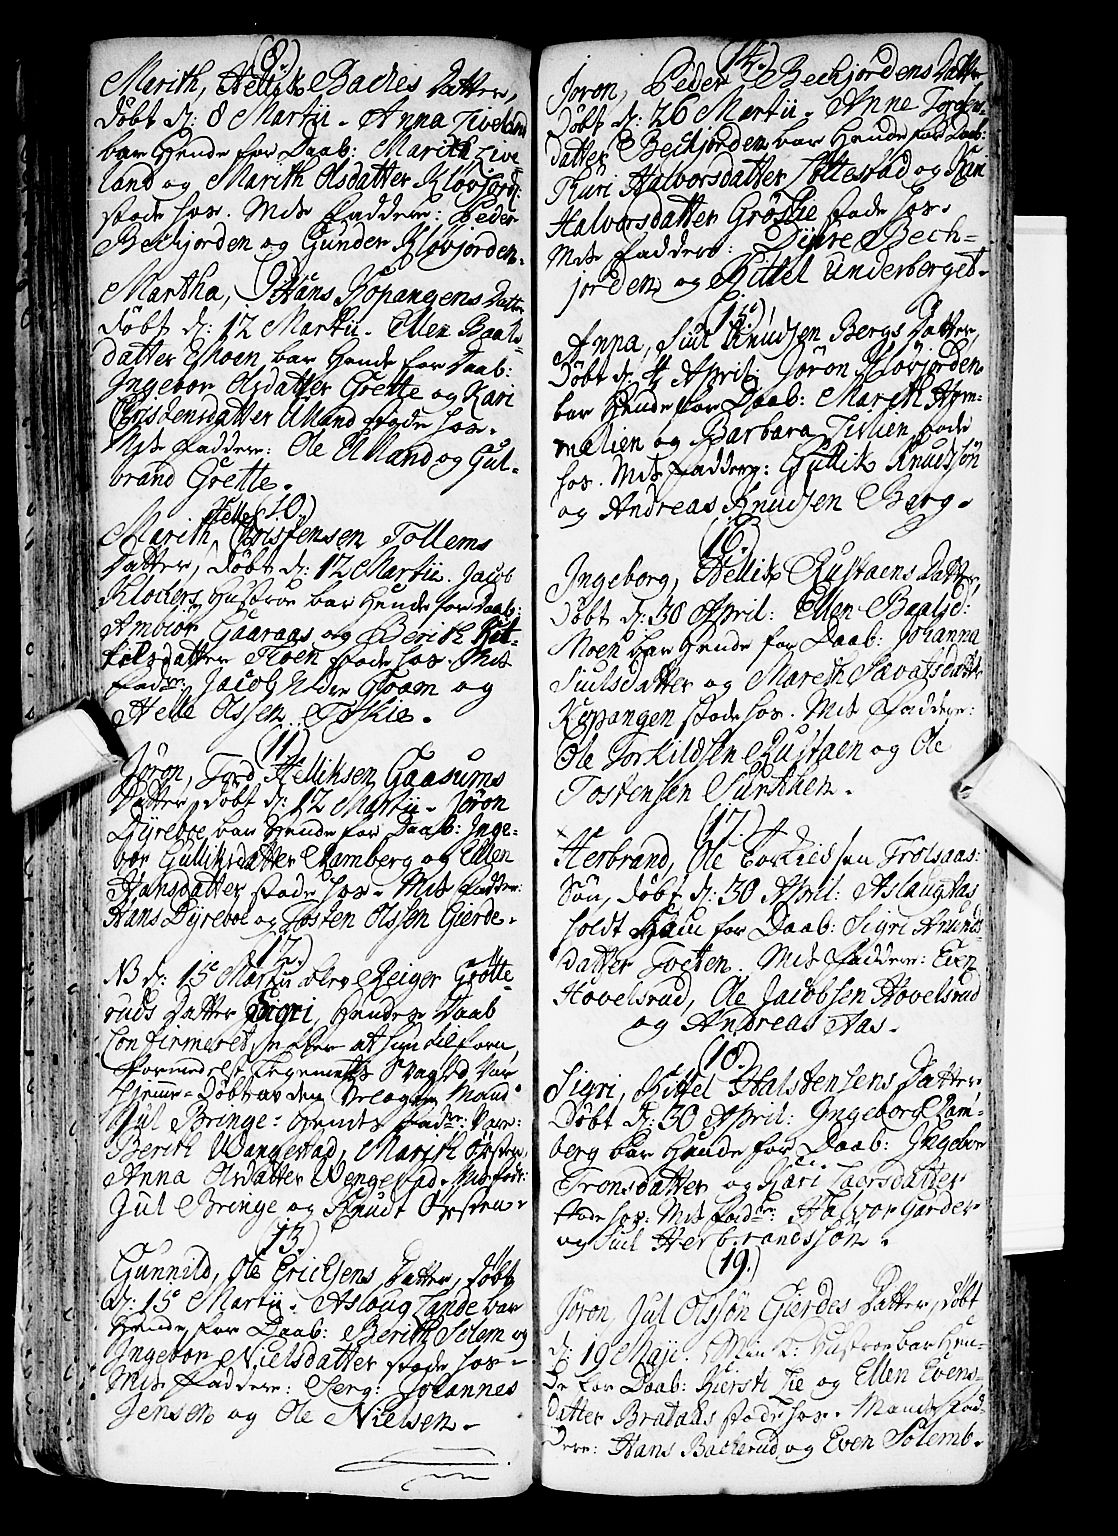 (8.)
Marith, Hellik Baches Datter,
døbt d: 8 Martii. Anna Liveland
bar hende for Daab: Marith Live
land og Marith Olsdatter Kløvjord:
stode hos. Mds faddere: Peder
Bechjorden og Gunder Kløvjorden.
(9.)
Martha, Hans Kopangens Datter
døbt d: 12 Martii. Ellen Baals-
datter Ehoen bar hende for Daab:
Ingebor Olsdatter Grette og Kari
Christensdatter Ulland stode hos.
Mds faddere: Ole Ulland og Gul-
brand Grette.
(10.)
Marith, Helle Christensen Tollems
Datter, døbt d: 12 Martii. Jacob
Klochers Hustroe bar hende for Daab:
Ambior Gaaraas og Berith Kit-
tilsdatter Moen stode hos. Mds
fadr: Jacob Foam og
Helle Olssen Toskie.
(11.)
Jøron, Tord Helliksen Gaasums
Datter, døbt d: 12 Martii. Jøron
Dyreboe bar hende for Daab: Inge-
bor Gulliksdatter Ramberg og Ellen
Hansdatter stode hos. Mds fadder:
Hans Dyreboe og Tosten Olssen Gierde.
(12.)
NB d: 15 Martii blev Reiger Grøtte-
ruds Datter Sigri, hendes Daab
Confirmeret, efter at hun tilforn,
formedelst Legemets Svaghed var
hjemme-døbt av den Velagte Mand
Jul Bringe: hendis fadre: vare:
Berith Wangestad, Marith Ørsten,
Anna Olsdatter Wengestad. Mds fadr:
Jul Bringe og Knudt Ørsten.
(13.)
Gunnild, Ole Ericksens Datter, døbt
d: 15 Martii. Asloug Lande bar
hende for Daab: Berith Solem og
Ingebor Nielsdatter stode hos.
Mds faddere: Serg: Johannes
Jensen og Ole Nielsen.
(14.)
Jøron, Peder Bechjordens Datter,
døbt d: 26 Martii. Anne
datter Bechjorden bar hende for Daab:
Thuri Halvorsdatter Lottesrad og Kari
Halvorsdatter Grøslie stode hos.
Mds faddere: Dyre Bech-
jorden og Kittel Underberget.
(15.)
Anna, Juul Knudsen Bergs Datter,
døbt d: 4 April: Jøron Kløvjorden
bar hende for Daab: Marith Ham-
melien og Barbara Tislien stode
hos. Mds faddere: Gullik Knudsøn
og Andreas Knudsen Berg.
(16.)
Ingeborg, Hellik Rustaens Datter,
døbt d: 30 April: Ellen Baalsd:
Moen bar hende for Daab: Johanna
Juulsdatter og Mareth Savatsdatter
Koppangen stode hos. Mds faddere:
Ole Torkildsen Rustaen og Ole
Tostensen Surkhen.
(17.)
Herbrand, Ole Torkildsen Trolsaas:
Søn, døbt d: 30 April: Aslaug Aas
holdt ham for Daab: Sigri Amunds-
datter Tveten. Mds faddere: Even
Hovelsrud, Ole Jacobsen Hovelsrud
og Andreas Aas.
(18.)
Sigri, Kittel Halstensens Datter
døbt d: 30 April: Ingeborg Ram-
berg bar hende for Daab: Ingebor
Tronsdatter og Kari Laorsdatter
stode hos: Mds fadre: Halvor Garder
og Juul Herbrandssøn.
(19.)
Jøron, Jul Olssøn Gierdes Datter, døbt
d: 19 Maji. Min K: Hustroe bar hen-
de for Daab: Kiersti Lie og Ellen Evens-
datter Brataas stode hos. Mands fad-
dere: Hans Bacherud og Even Solemb.